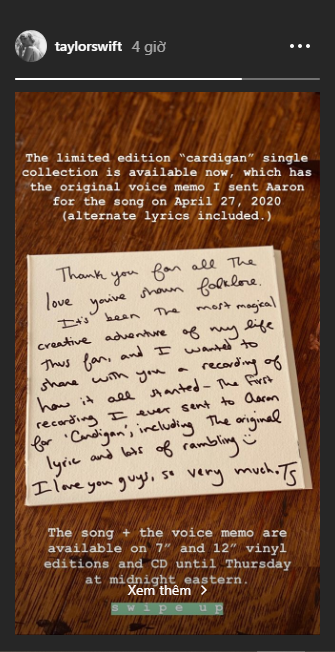 taylorswift 4 giờ
The limited edition "cardigan" single
collection is available now, which has
the original voice memo I sent Aaron
for the song on April 27, 2020
(alternate lyrics included.)
Thank you for all The
love you've shown folklore.
It's been The most magical
creative adventure of my life
Thus far, and I wanted to
share with you a recording of
how it all started - The first
recording I ever sent to Aaron
for 'Cardigan', including The original
lyric and lots of rambling
I love you guys, so very much. TS
The song + the voice memo are
available on 7" and 12" vinyl
editions and CD until Thursday
at midnight eastern.
Xem thêm
swipe up